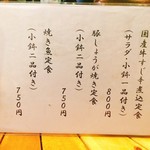 国産牛すじ手煮込定食
(サラダ・小鉢一品付き)
800円
豚しょうが焼き定食
(小鉢二品付き)
750円
焼き魚定食
(小鉢二品付き)
750円